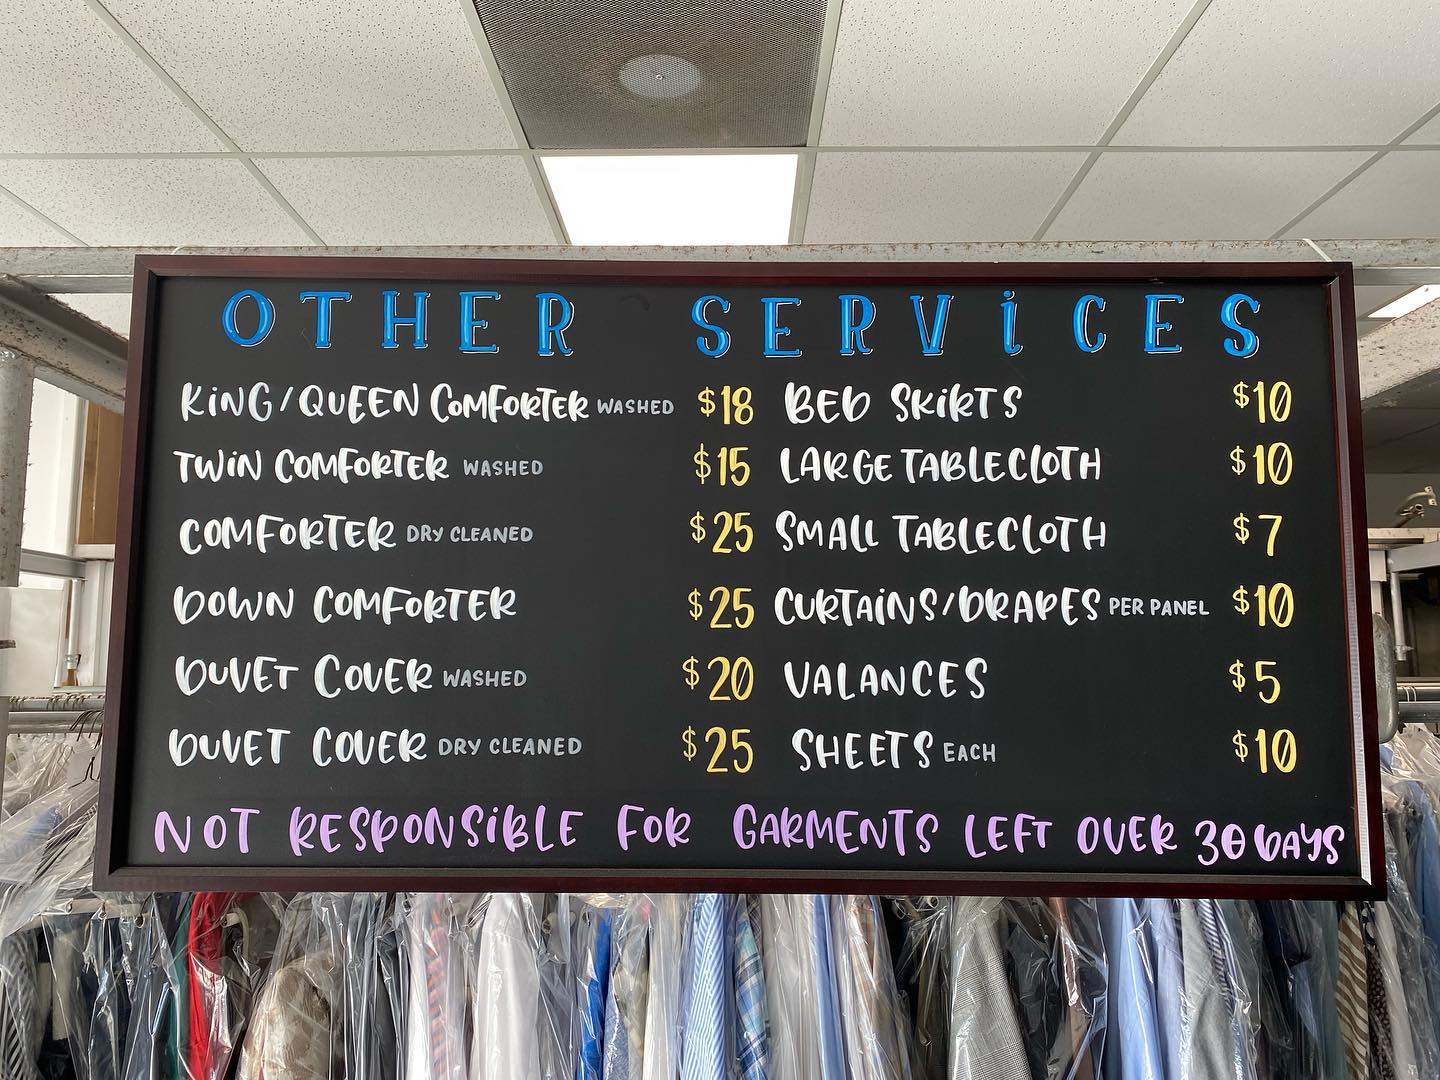 OTHER SERVICES
KING/QUEEN COMFORTER WASHED $18
TWIN COMFORTER WASHED $15
COMFORTER DRY CLEANED $25
DOWN COMFORTER $25
DUVET COVER WASHED $20
DUVET COVER DRY CLEANED $25
BED SKIRTS $10
LARGE TABLECLOTH $10
SMALL TABLECLOTH $7
CURTAINS/DRAPES PER PANEL $10
VALANCES $5
SHEETS EACH $10
NOT RESPONSIBLE FOR GARMENTS LEFT OVER 30 DAYS